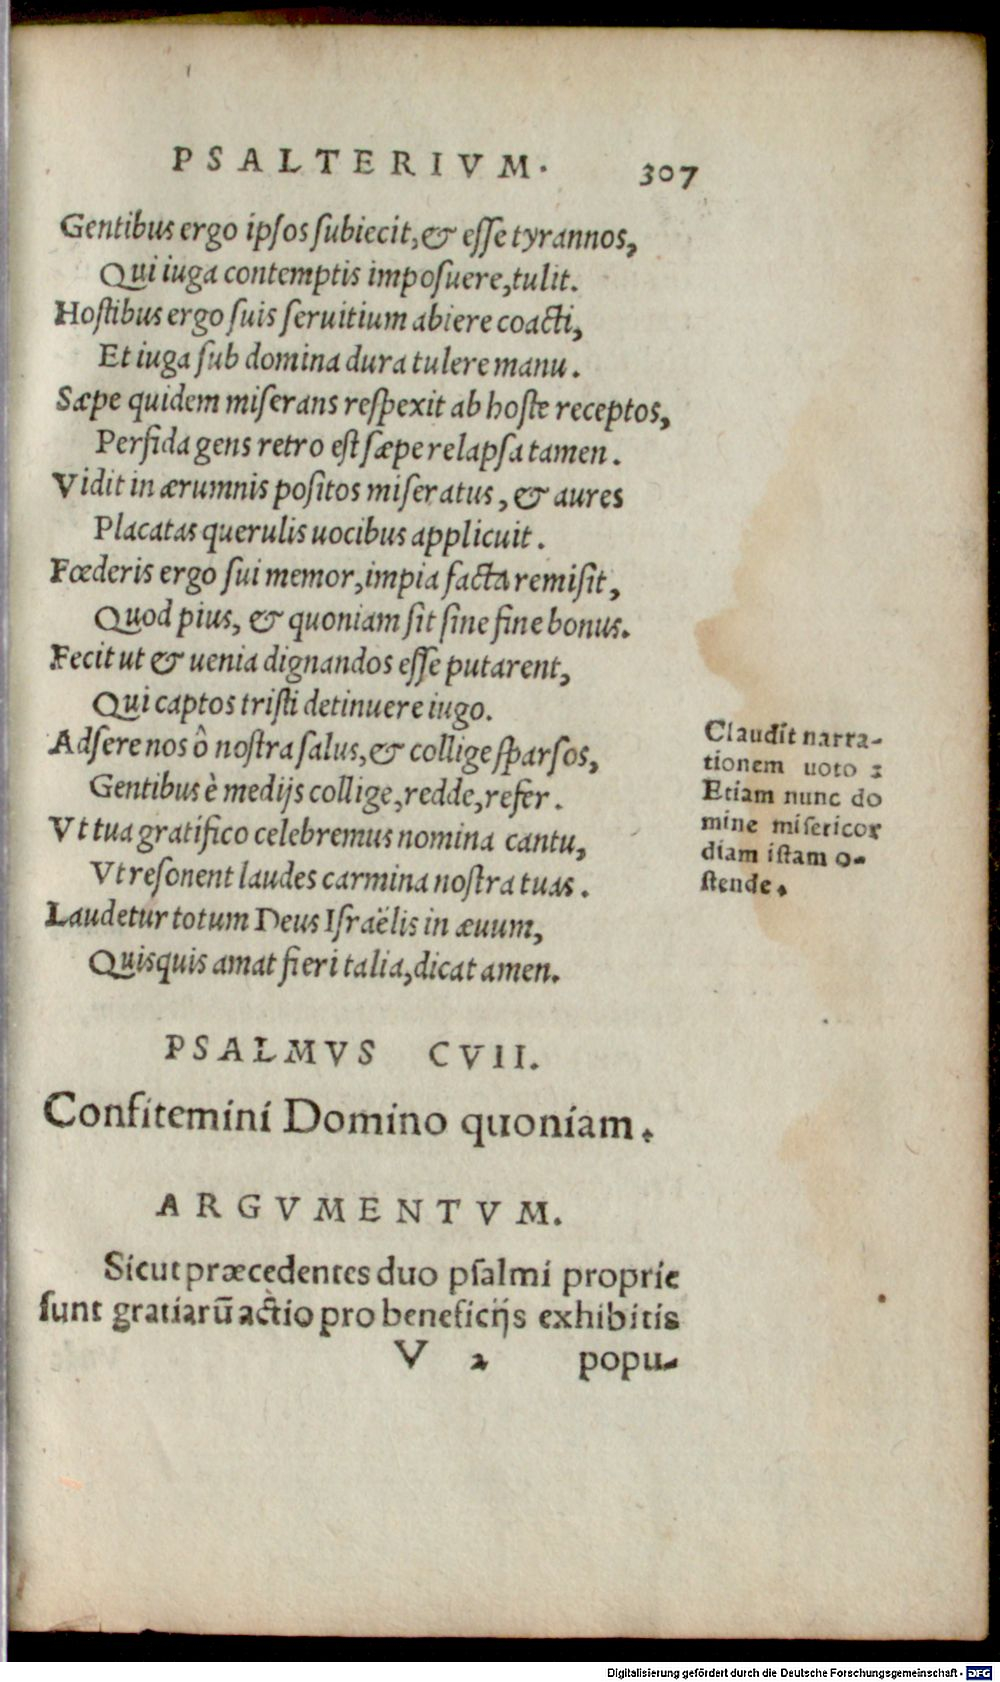 PSALTERIVM. 307
Gentibus ergo ipſos ſubiecit, & eſſe tyrannos,
Qui iuga contemptis impoſuere, tulit.
Hoſtibus ergo ſuis ſeruitium abiere coacti,
Et iuga ſub domina dura tulere manu.
Sæpe quidem miſerans reſpexit ab hoſte receptos,
Perfida gens retro eſt ſæpe relapſa tamen.
Vidit in ærumnis poſitos miſeratus, & aures
Placatas querulis uocibus applicuit.
Fœderis ergo ſui memor, impia facta remiſit,
Quod pius, & quoniam ſit ſine fine bonus.
Fecit ut & uenia dignandos eſſe putarent,
Qui captos triſti detinuere iugo.
Adſere nos ô noſtra ſalus, & collige ſparſos,
Gentibus è medijs collige, redde, refer.
Vt tua gratifico celebremus nomina cantu,
Vt reſonent laudes carmina noſtra tuas.
Laudetur totum Deus Iſraëlis in æuum,
Quisquis amat fieri talia, dicat amen.
Claudit narra-
tionem uoto :
Etiam nunc do
mine miſericor
diam iſtam o-
ſtende.
PSALMVS CVII.
Confitemini Domino quoniam.
ARGVMENTVM.
Sicut præcedentes duo pſalmi proprie
ſunt gratiarũ actio pro beneficijs exhibitis
V 2 popu-
Digitalisierung gefördert durch die Deutsche Forschungsgemeinschaft - DFG